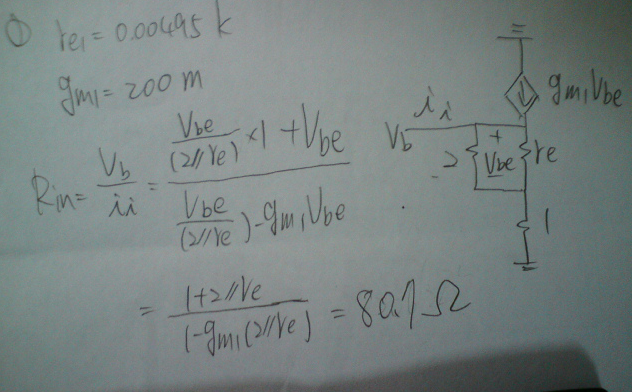 ① re1 = 0.00495 k
gm1 = 200 m
Rin = Vb / ii = (Vbe / (2//re) × 1 + Vbe) / (Vbe / (2//re) - gm1Vbe)
= (1+2//re) / (1-gm1(2//re)) = 80.1 Ω
gm1Vbe
Vb ii
2 + Vbe - re
1